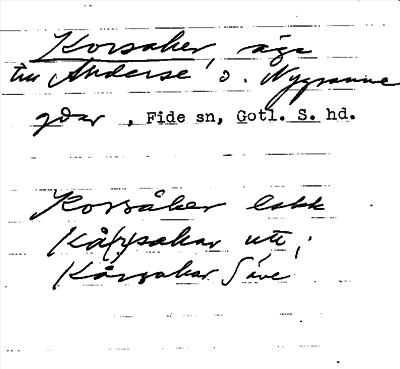 Korsaker, äga
till Anderse o. Nygranne
gdar, Fide sn, Gotl. S. hd.
Korsåker lokk
Kå(r)sakar utt;
Kårsakar Säve